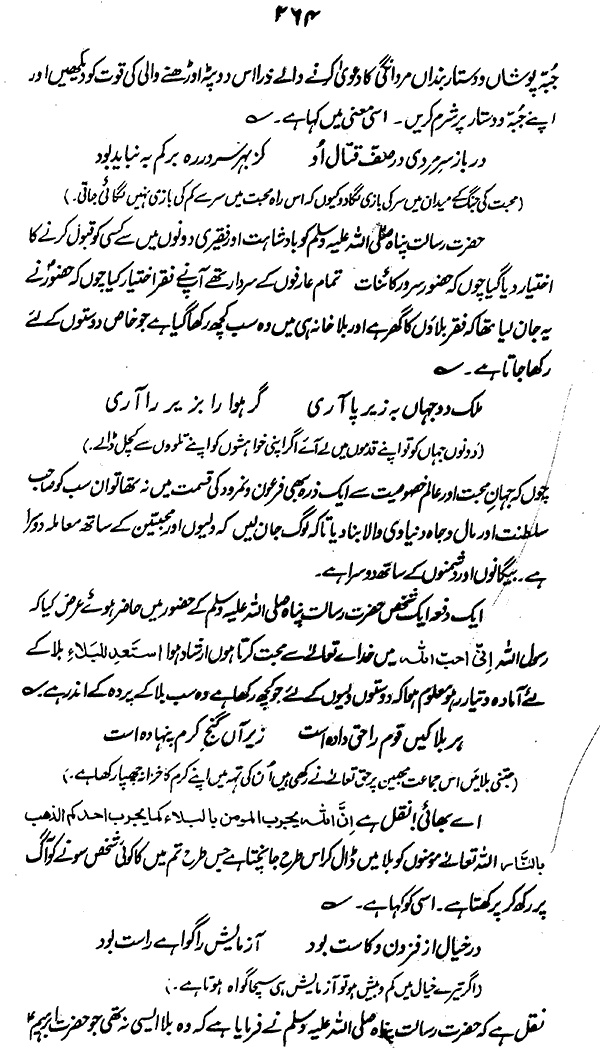 ۲۶۴
جُبّہ پوشاں و دستار بنداں مردانگی کا دعویٰ کرنے والے ذرا اس دوپٹہ اوڑھنے والی کی قوت کو دیکھیں اور
اپنے جُبّہ و دستار پر شرم کریں۔ اسی معنی میں کہا ہے۔
در باز سرمردی در صف قتال اُو کز بہر سر دررہ بر کم بہ نیاید بود
(محبت کی جنگ کے میدان میں سر کی بازی لگادو کیوں کہ اس راہ محبت میں سر سے کم کی بازی نہیں لگائی جاتی۔)
حضرت رسالت پناہ صلی اللہ علیہ وسلم کو بادشاہت اور فقیری دونوں میں سے کسی کو قبول کرنے کا
اختیار دیا گیا چوں کہ حضور سرور کائنات تمام عارفوں کے سردار تھے آپ نے فقر اختیار کیا چوں کہ حضورؐ نے
یہ جان لیا تھا کہ فقر بلاؤں کا گھر ہے اور بلا خانہ ہی میں وہ سب کچھ رکھا گیا ہے جو خاص دوستوں کے لئے
رکھا جاتا ہے۔
ملک دو جہاں بہ زیر پا آری گر ہوا را بزیر را آری
(دونوں جہاں کو تو اپنے قدموں میں لے آئے اگر اپنی خواہشوں کو اپنے تلووں سے کچل ڈالے۔)
چوں کہ جہانِ محبت اور عالم خصومیت سے ایک ذرہ بھی فرعون و نمرود کی قسمت میں نہ تھا تو ان سب کو صاحب
سلطنت اور مال و جاہ دنیاوی والا بنادیا تاکہ لوگ جان لیں کہ ولیوں اور محبتین کے ساتھ معاملہ دوسرا
ہے۔ بیگانوں اور دشمنوں کے ساتھ دوسرا ہے۔
ایک دفعہ ایک شخص حضرت رسالت پناہ صلی اللہ علیہ وسلم کے حضور میں حاضر ہوئے عرض کیا کہ
رسول اللہ اِنّی احب اللہ میں خدائے تعالےٰ سے محبت کرتا ہوں ارشاد ہوا استعد للبلاء بلا کے
لئے آمادہ و تیار رہو معلوم ہوا کہ دوستوں ولیوں کے لئے جو کچھ رکھا ہے وہ سب بلا کے پردہ کے اندر ہے۔
ہر بلا کیں قوم راحق دادہ است زیر آں گنجِ کرم بنہادہ است
(جتنی بلائیں اس جماعت محبین پر حق تعالےٰ نے رکھی ہیں اُن کی تہہ میں اپنے کرم کا خزانہ چھپا رکھا ہے۔)
اے بھائی! نقل ہے اِنَّ اللہ یجرب المومن بالبلاء کما یجرب احدکم الذھب
بالنّار اللہ تعالےٰ مومنوں کو بلا میں ڈال کر اس طرح جانچتا ہے جس طرح تم میں کا کوئی شخص سونے کو آگ
پر رکھ کر پرکھتا ہے۔ اسی کو کہا ہے۔
در خیال از فزون و کاست بود آزمایش را گواہے راست بود
(اگر تیرے خیال میں کم و بیش ہو تو آزمایش ہی سچا گواہ ہوتا ہے۔)
نقل ہے کہ حضرت رسالت پناہ صلی اللہ علیہ وسلم نے فرمایا ہے کہ وہ بلا ایسی نہ تھی جو حضرت ابراہیمؑ